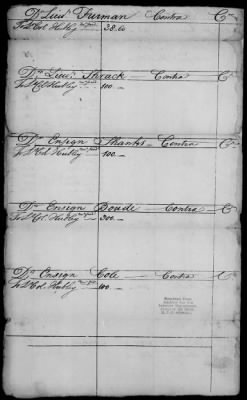 Dr Lieut Furman Contra Cr
To Lt Col Hubley 38.60
Dr Lieut Shrack Contra Cr
To Lt Col Hubley 100.—
Dr Ensign Shanks Contra Cr
To Lt Col Hubley 100.—
Dr Ensign Boude Contra Cr
To Lt Col. Hubley 300.—
Dr Ensign Cole Contra Cr
To Lt Col. Hubley 100.—